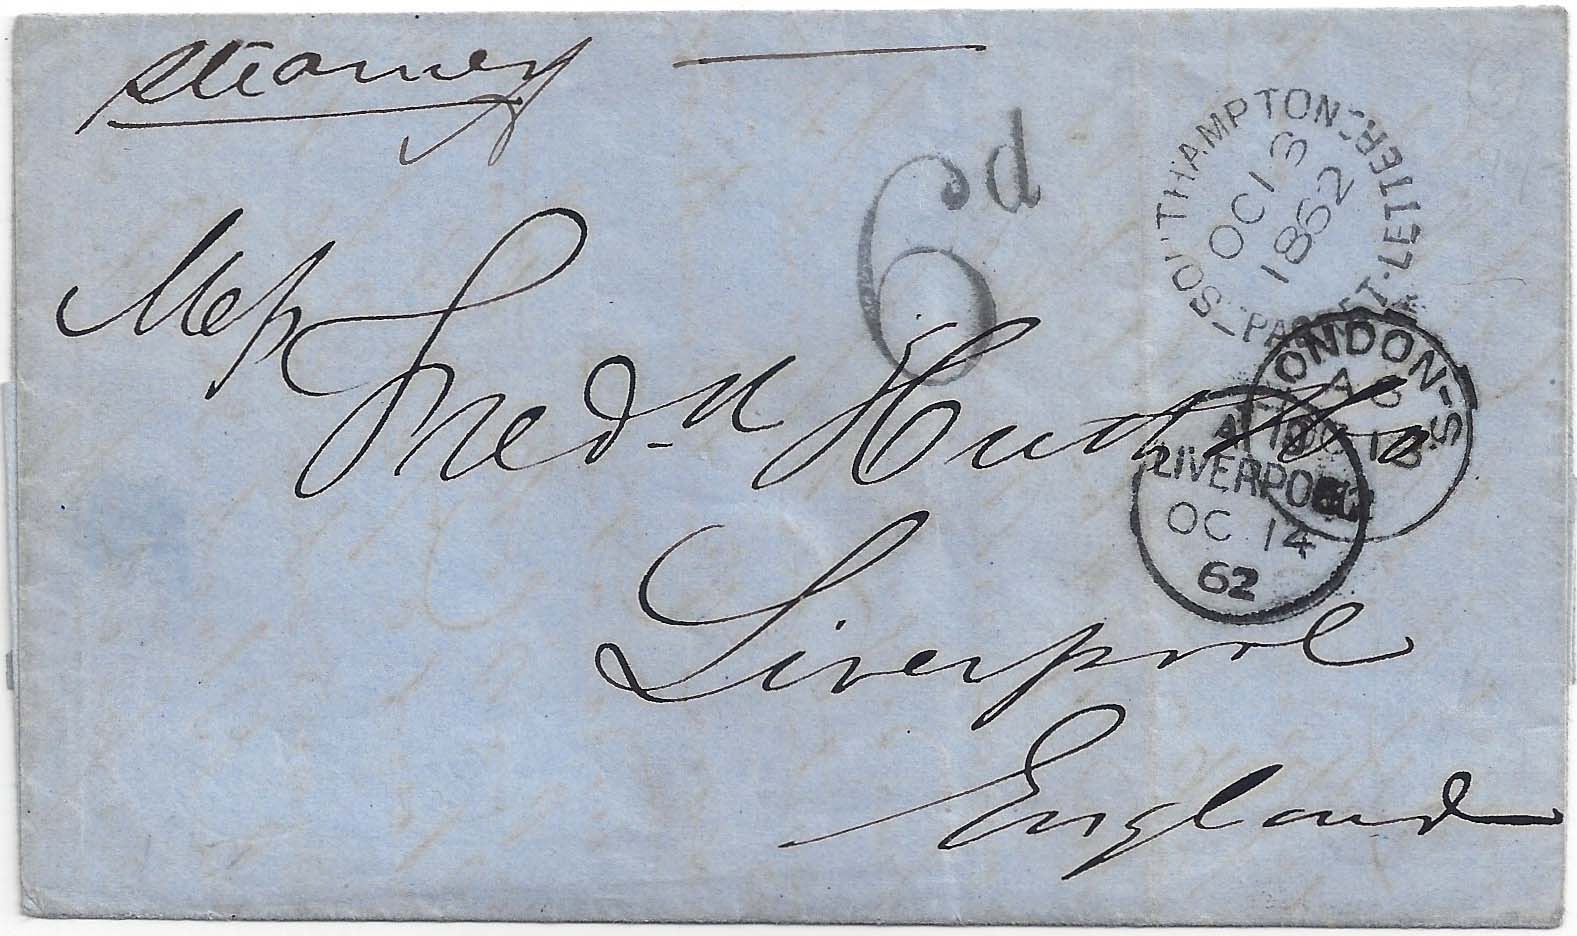 Steamer
6d
SOUTHAMPTON PACKET-LETTER
OC 13
1862
LONDON-S
A
OC 13
62
A
LIVERPOOL
OC 14
62
Mess
Fred. Huth & Co
Liverpool
England